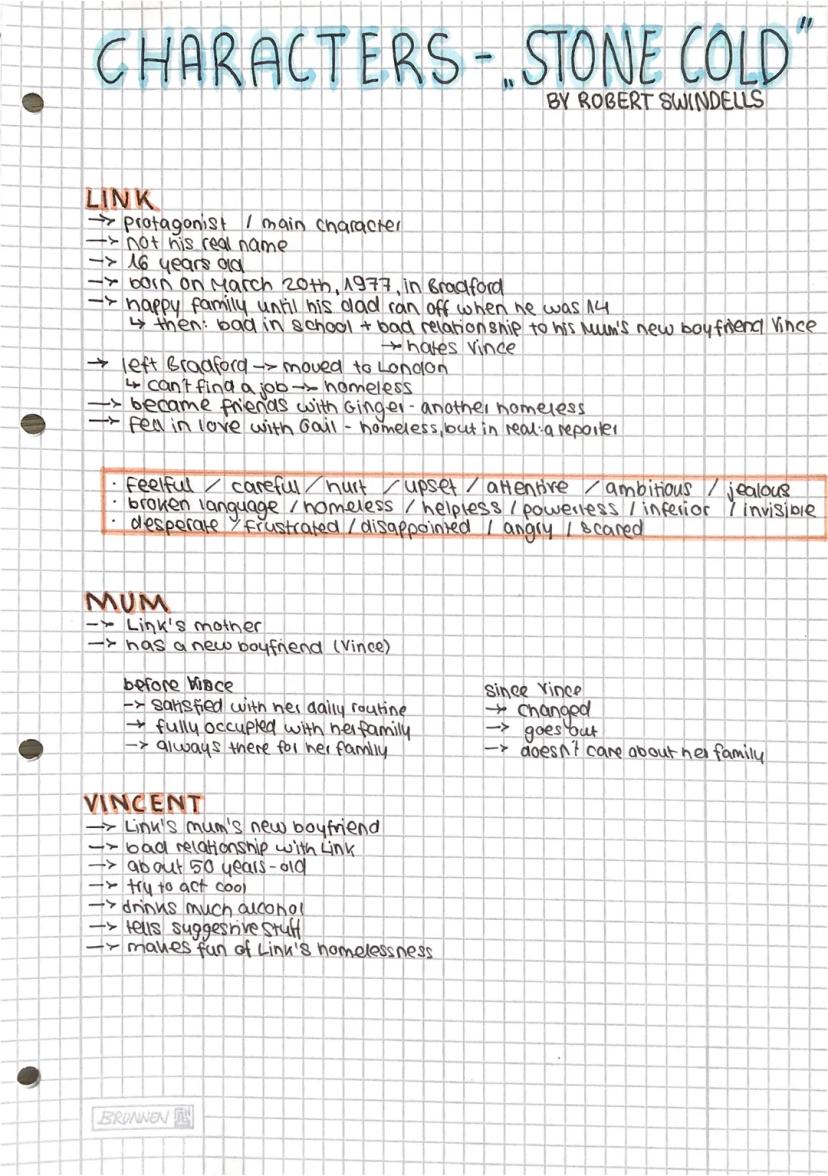 CHARACTERS - „STONE COLD"
BY ROBERT SWINDELLS
LINK
→ protagonist / main character
→ not his real name
→ 16 years old
→ born on March 20th, 1977, in Bradford
→ happy family until his dad ran off when he was 14
↳ then: bad in school + bad relationship to his Mum's new boyfriend Vince
→ hates Vince
→ left Bradford → moved to London
↳ can't find a job → homeless
→ became friends with Ginger - another homeless
→ fell in love with Gail - homeless, but in real: a reporter
· feelful / careful / hurt / upset / attentive / ambitious / jealous
· broken language / homeless / helpless / powerless / inferior / invisible
· desperate / frustrated / disappointed / angry / scared
MUM
→ Link's mother
→ has a new boyfriend (Vince)
before Vince
→ satisfied with her daily routine
→ fully occupied with her family
→ always there for her family
since Vince
→ changed
→ goes out
→ doesn't care about her family
VINCENT
→ Link's mum's new boyfriend
→ bad relationship with Link
→ about 50 years-old
→ try to act cool
→ drinks much alcohol
→ tells suggestive stuff
→ makes fun of Link's homelessness
BRUNNEN